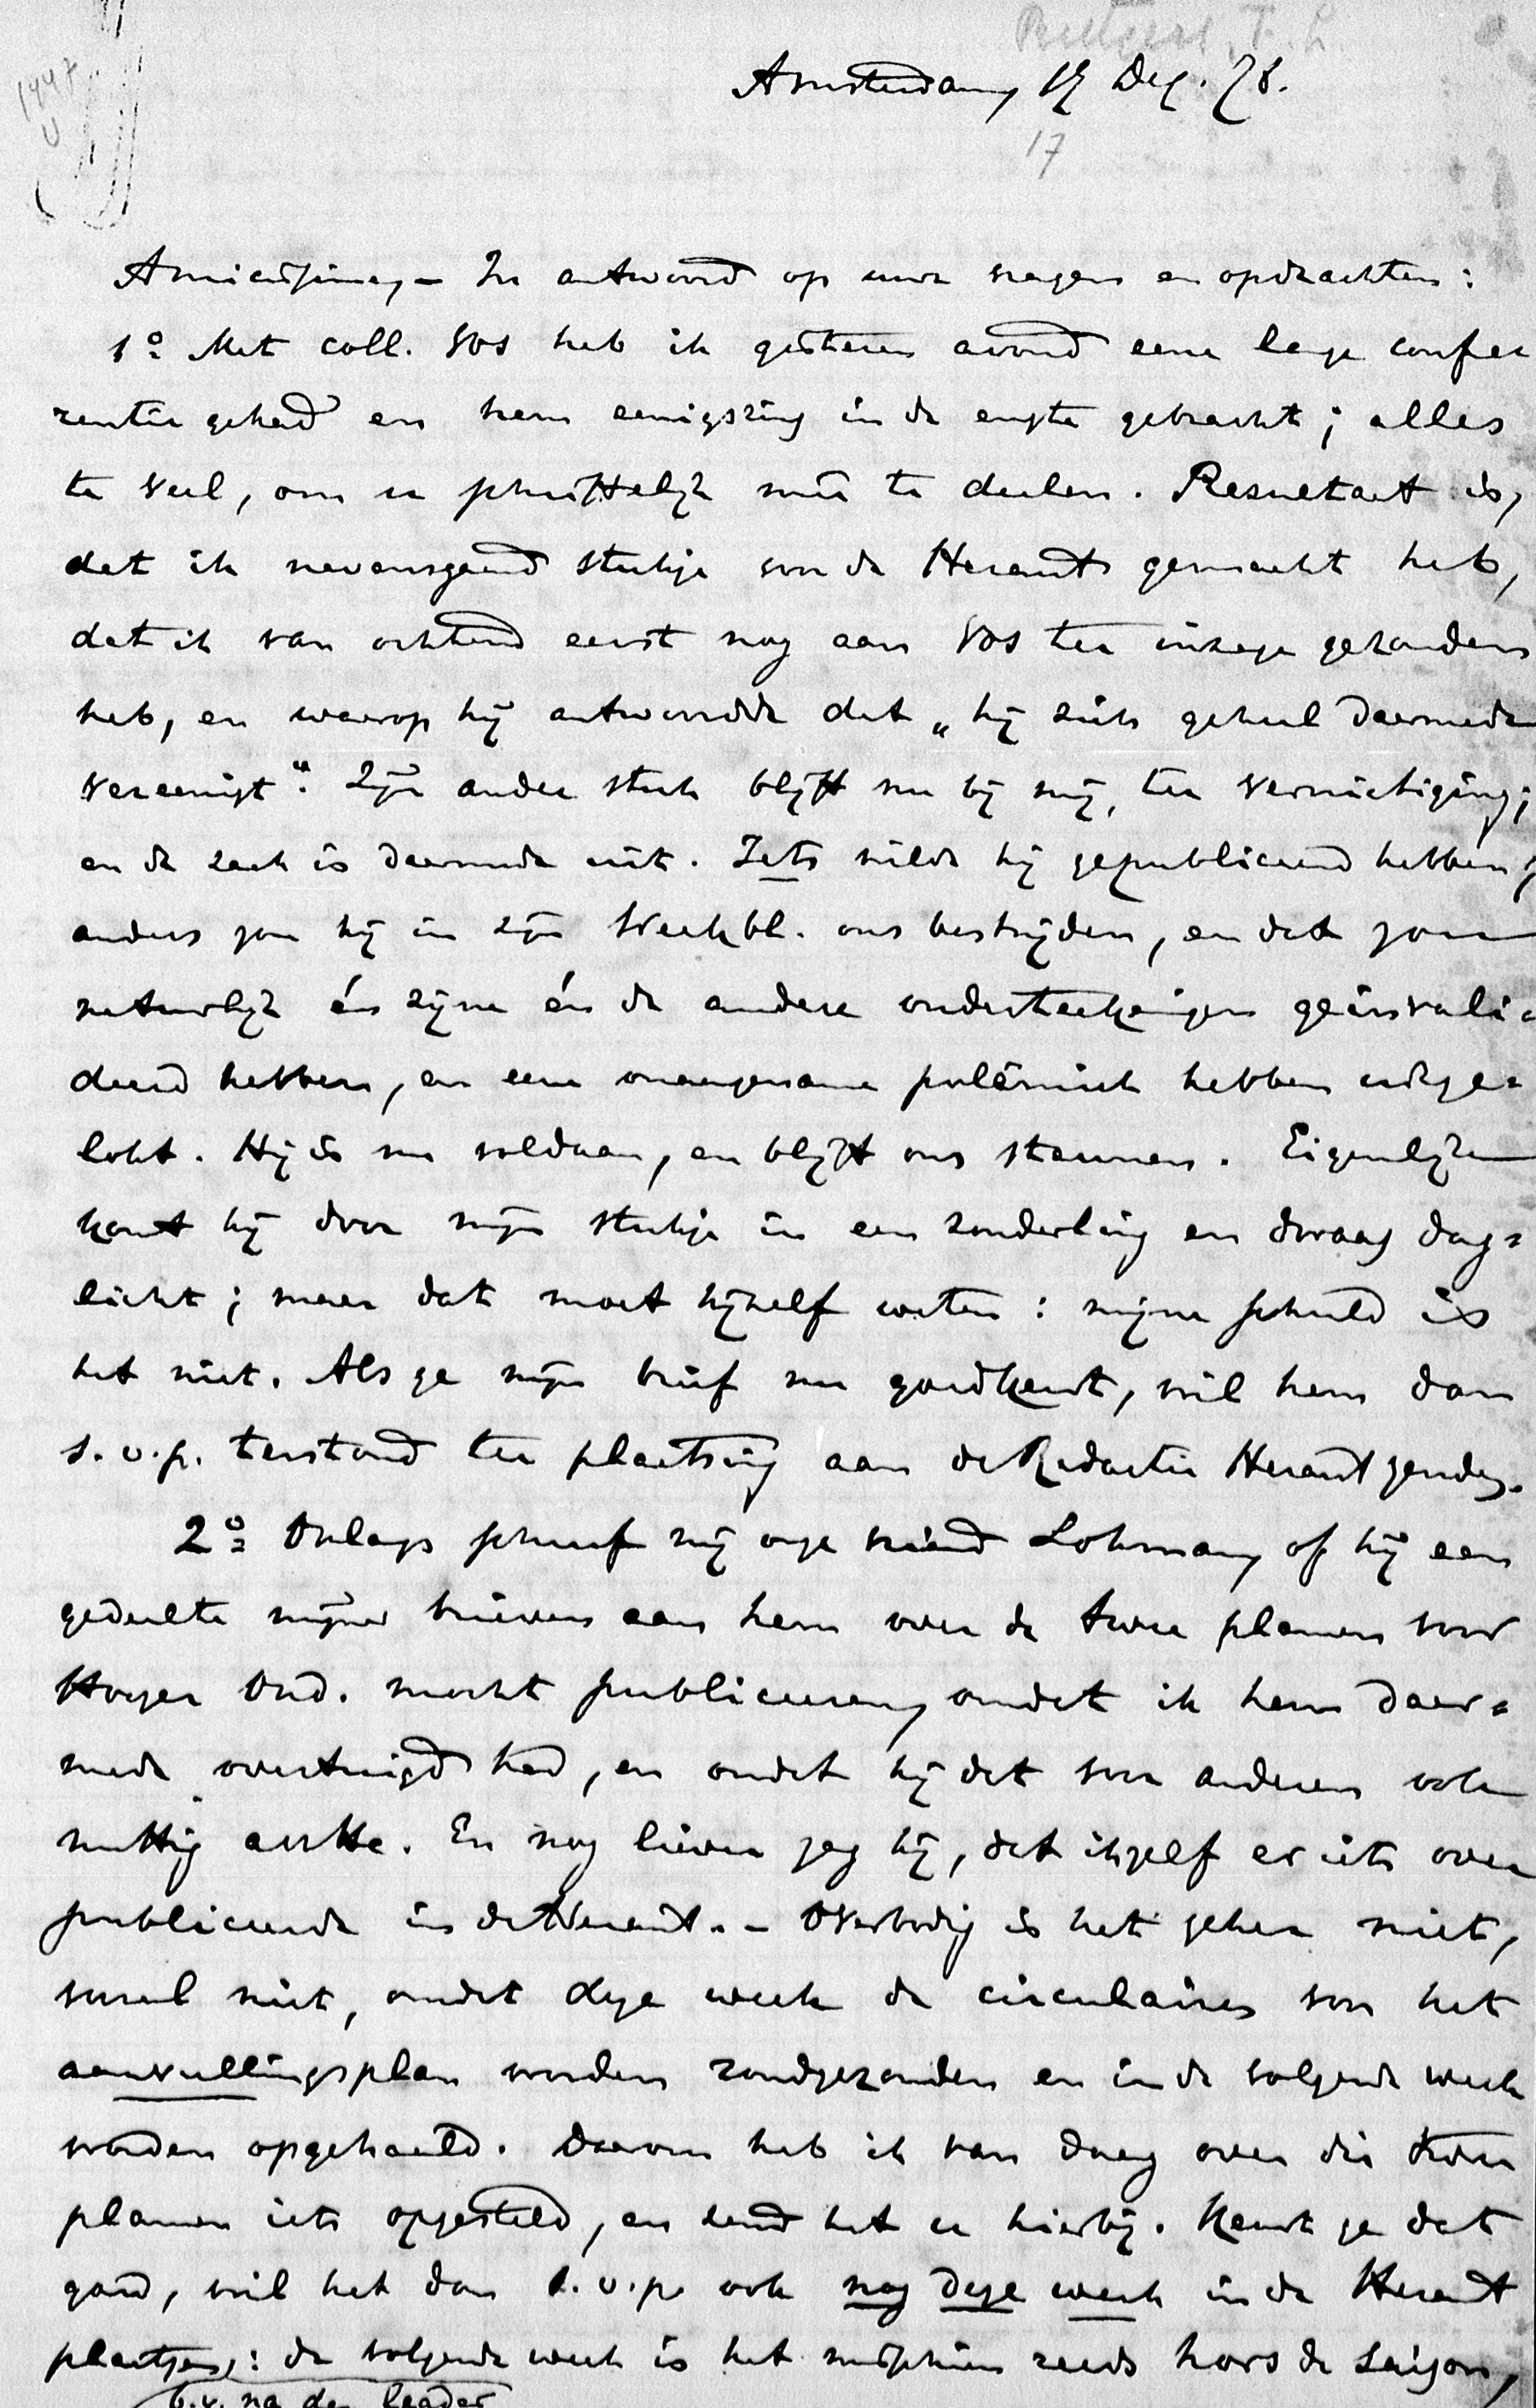 Rutgers, F. L.
Amsterdam, 17 Dec. 78.
17
1447
Amicissime, – In antwoord op uwe vragen en opdrachten:
1o Met coll. Vos heb ik gisteren avond eene lange confe=
rentie gehad en hem eenigszins in de engte gebracht; alles
te veel, om u schriftelijk meê te deelen. Resultaat is,
dat ik nevensgaand stukje voor de Heraut gemaakt heb,
dat ik van ochtend eerst nog aan Vos ter inzage gezonden
heb, en waarop hij antwoordde dat „hij zich geheel daarmede
vereenigt“. Zijn ander stuk blijft nu bij mij, ter vernietiging;
en de zaak is daarmede uit. Iets wilde hij gepubliceerd hebben;
anders zou hij in zijn Weekbl. ons bestrijden, en dat zou
natuurlijk én zijne én de andere onderteekeningen geïnvali=
deerd hebben, en eene onaangename polémiek hebben uitge=
lokt. Hij is nu voldaan, en blijft ons steunen. Eigenlijk
komt hij door mijn stukje in een zonderling en dwaas dag=
licht; maar dat moet hijzelf weten: mijne schuld is
het niet. Als ge mijn brief nu goedkeurt, wil hem dan
s.v.p. terstond ter plaatsing aan de Redactie Heraut zenden.
2o Onlangs schreef mij onze vriend Lohman, of hij een
gedeelte mijner brieven aan hem over de twee plannen voor
Hooger Ond. mocht publiceeren, omdat ik hem daar=
mede overtuigd had, en omdat hij dat voor anderen ook
nuttig achtte. En nog liever zag hij, dat ikzelf er iets over
publiceerde in de Heraut. – Overbodig is het zeker niet,
vooral niet, omdat deze week de circulaires voor het
aanvullingsplan worden rondgezonden en in de volgende week
worden opgehaald. Daarom heb ik van daag over die twee
plannen iets opgesteld, en zend het u hierbij. Keurt ge dat
goed, wil het dan s.v.p. ook nog deze week in de Heraut
plaatsen: de volgende week is het misschien reeds hors de saison,
b.v. na den leader